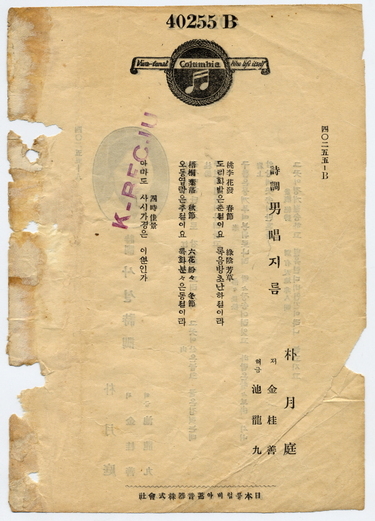 40255 B
Viva-tonal Columbia
四〇二五五-B
詩調 男唱지름
朴月庭
저 金桂善
해금 池龍九
桃李花發 春節 綠陰芳草
도리화발은춘절이요 록음방초난하졀이라
梧桐葉落 秋節 六花紛々 冬節
오동엽락은추졀이요 륙화분々은동졀이라
四時佳景
아마도 사시가경은 이뿐인가
K-REC.KU
日本콜럼비아蓄音器株式會社